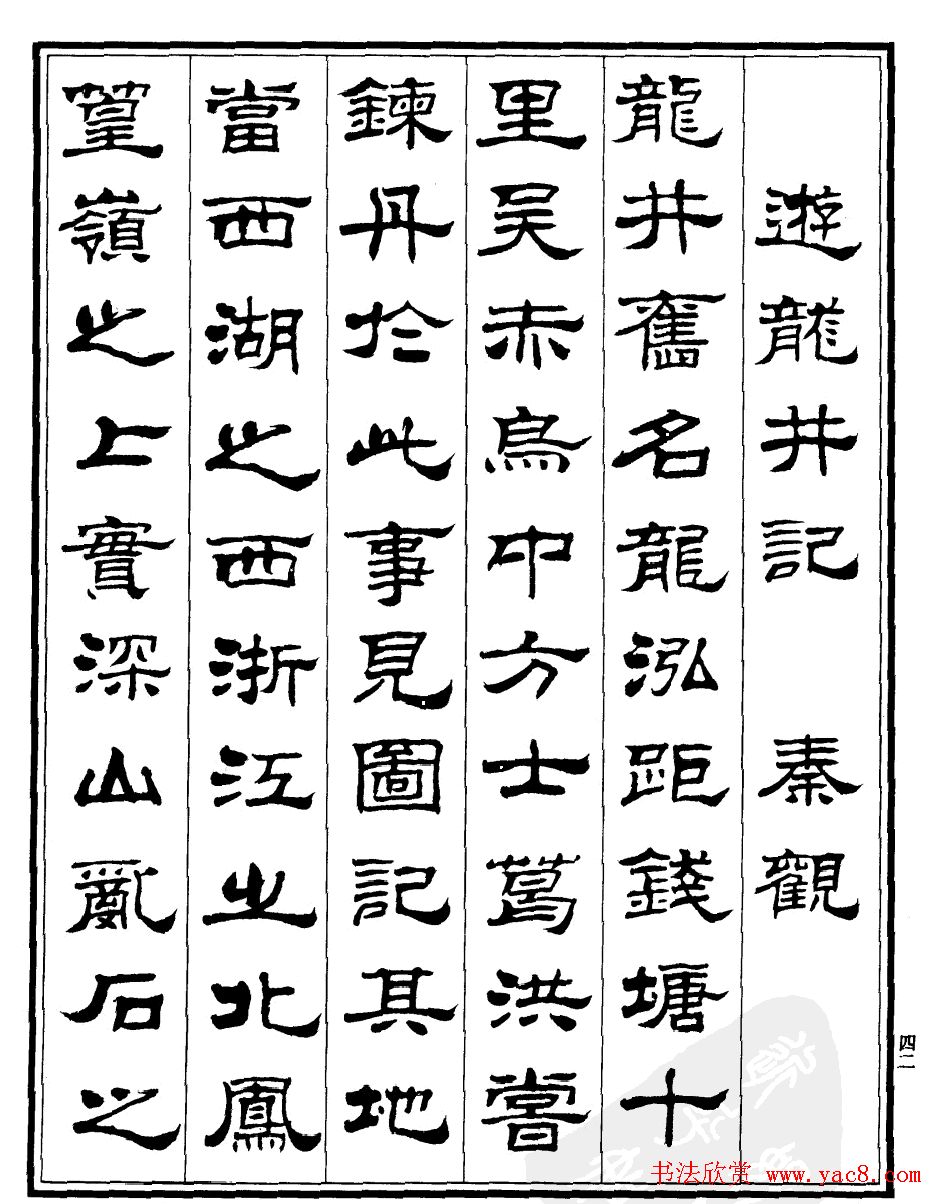 遊龍井記 秦觀
龍井舊名龍泓距錢塘十
里吴赤烏中方士葛洪嘗
鍊丹於此事見圖記其地
當西湖之西浙江之北鳳
篁嶺之上實深山亂石之
四二
书法欣赏 www.yac8.com